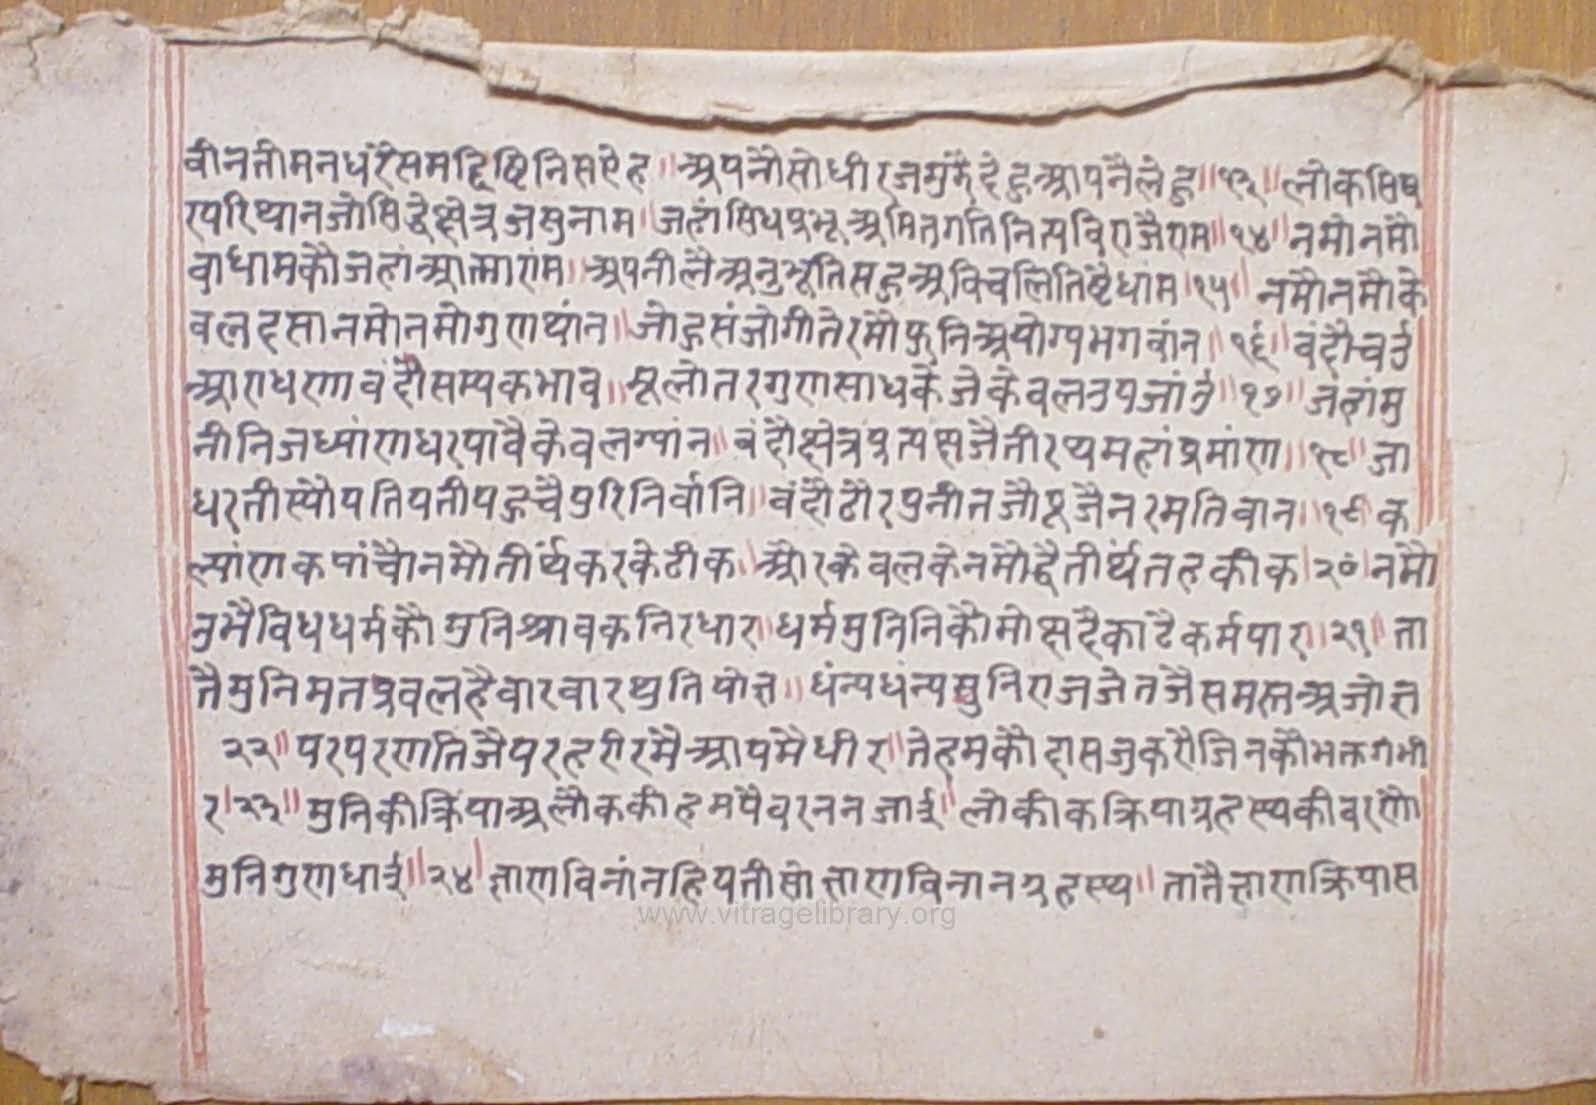 वीनतीमनधरैसमद्रिष्टिनिसप्रेह॥अपनौसोधीरजमुझैदेहुआपनैलेहु॥१३॥लोकसिष
रपरिथानजोसिद्धक्षेत्रजसुनाम।जहांसिधप्रभूअमितगतिनित्यविराजैराम॥१४॥नमोनमौ
वाधामकौजहांआत्माराम॥अपनीलैअनुभूतिसहुअविचलतिष्टैधांम।१५॥नमौनमौके
वलदसानमोनमोगुणथांन॥जोहुसंजोगीतेरमौफुनिअयोग्यभगवांन॥१६॥वंदौचउ
आराधरणावंदौसम्यकभाव॥मूलोतरगुणसाधकेंजेकेवलउपजांउ॥१७॥जहांमु
नीनिजध्यांणधरपावैकेवलग्यांन॥बंदौक्षेत्रप्रत्यक्षजैतीरथमहांप्रमांण॥१८॥जा
धरतीस्यौपतियतीपहुचैपुरिनिर्वानि॥वंदौठौरपुनीनजौपूजैनरमतिवान॥१९॥क
ल्यांणकपांचौनमौतीर्थंकरकेठीक॥औरकेवलकेनमौद्वैतीर्थंतहकीक।२०।नमौ
नुभैविधधर्मकौमुनिश्रावकनिरधार॥धर्ममुनिनिकौमोक्षदैकाटैकर्मपार॥२१॥ता
तैमुनिमतप्रवलहैवारवारथुतियोत्त॥धंन्यधंन्यमुनिराजजेतजैसमस्तअजोत्त
२२॥परपरणतिजैपरहरीरमैआपमैधीर॥तेहमकौदासजुकरौजिनकौभक्तगंभी
र।२३॥मुनिकीक्रियाअलौककीहमपैवरननजाई॥लोकीकक्रियाग्रहस्यकीवरणौ
मुनिगुणधाई॥२४॥त्ताणविनांनहियतीसोत्ताणविनानग्रहस्थ॥तातैत्ताणक्रियास
www.vitragelibrary.org